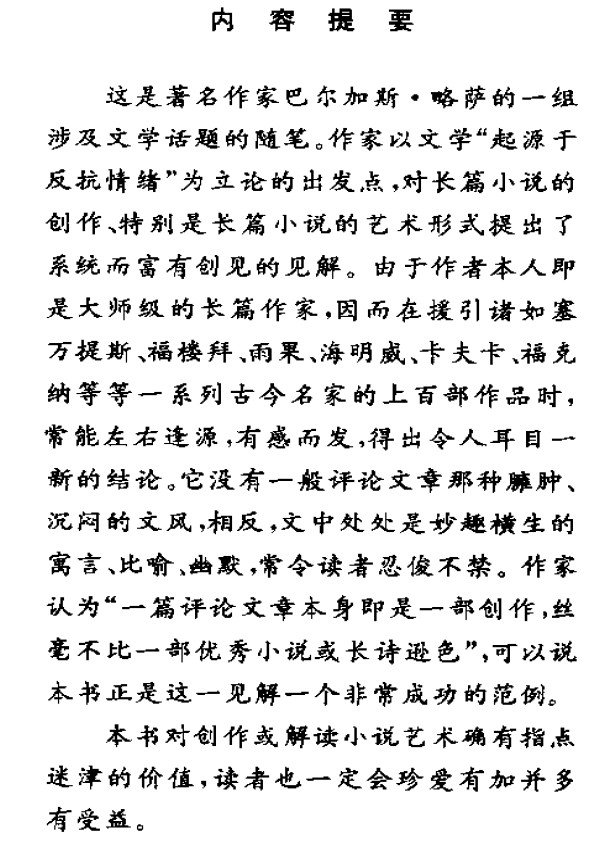 内容提要
这是著名作家巴尔加斯·略萨的一组
涉及文学话题的随笔。作家以文学“起源于
反抗情绪”为立论的出发点,对长篇小说的
创作、特别是长篇小说的艺术形式提出了
系统而富有创见的见解。由于作者本人即
是大师级的长篇作家,因而在援引诸如塞
万提斯、福楼拜、雨果、海明威、卡夫卡、福克
纳等等一系列古今名家的上百部作品时,
常能左右逢源,有感而发,得出令人耳目一
新的结论。它没有一般评论文章那种臃肿、
沉闷的文风,相反,文中处处是妙趣横生的
寓言、比喻、幽默,常令读者忍俊不禁。作家
认为“一篇评论文章本身即是一部创作,丝
毫不比一部优秀小说或长诗逊色”,可以说
本书正是这一见解一个非常成功的范例。
本书对创作或解读小说艺术确有指点
迷津的价值,读者也一定会珍爱有加并多
有受益。